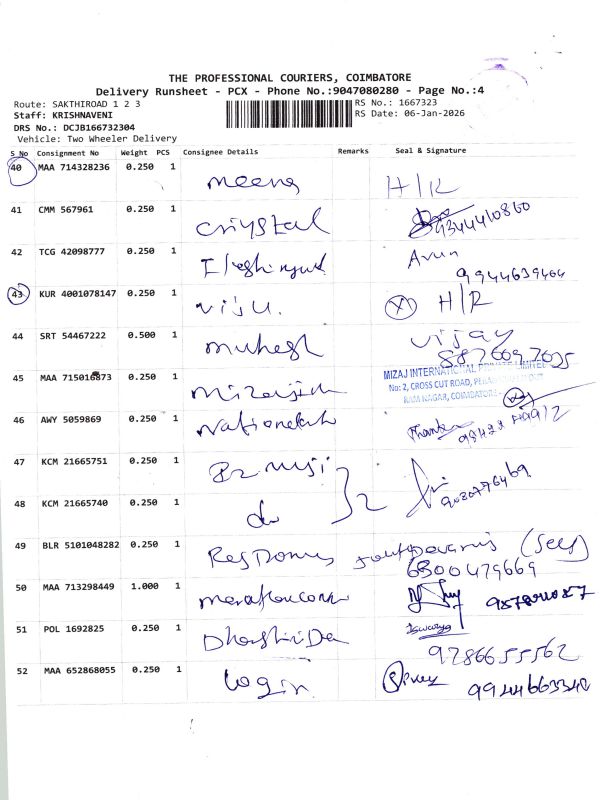 THE PROFESSIONAL COURIERS, COIMBATORE
Delivery Runsheet - PCX - Phone No.:9047080280 - Page No.:4
Route: SAKTHIROAD 1 2 3
RS No.: 1667323
Staff: KRISHNAVENI
RS Date: 06-Jan-2026
DRS No.: DCJB166732304
Vehicle: Two Wheeler Delivery
S No Consignment No Weight PCS Consignee Details Remarks Seal & Signature
40 MAA 714328236 0.250 1 meena H/R
41 CMM 567961 0.250 1 Crystal 9344410860
42 TCG 42098777 0.250 1 Arun
9944639464
43 KUR 4001078147 0.250 1 viju. X H/R
44 SRT 54467222 0.500 1 mukesh vijay
8876697695
45 MAA 715016873 0.250 1 MIZAJ INTERNATIONAL PRIVATE LIMITED
No: 2, CROSS CUT ROAD,
RAM NAGAR, COIMBATORE
46 AWY 5059869 0.250 1
47 KCM 21665751 0.250 1 2
9080776469
48 KCM 21665740 0.250 1 do
49 BLR 5101048282 0.250 1 (Self)
6300479669
50 MAA 713298449 1.000 1
51 POL 1692825 0.250 1 Iswarya
9286655562
52 MAA 652868055 0.250 1 login
9944663342